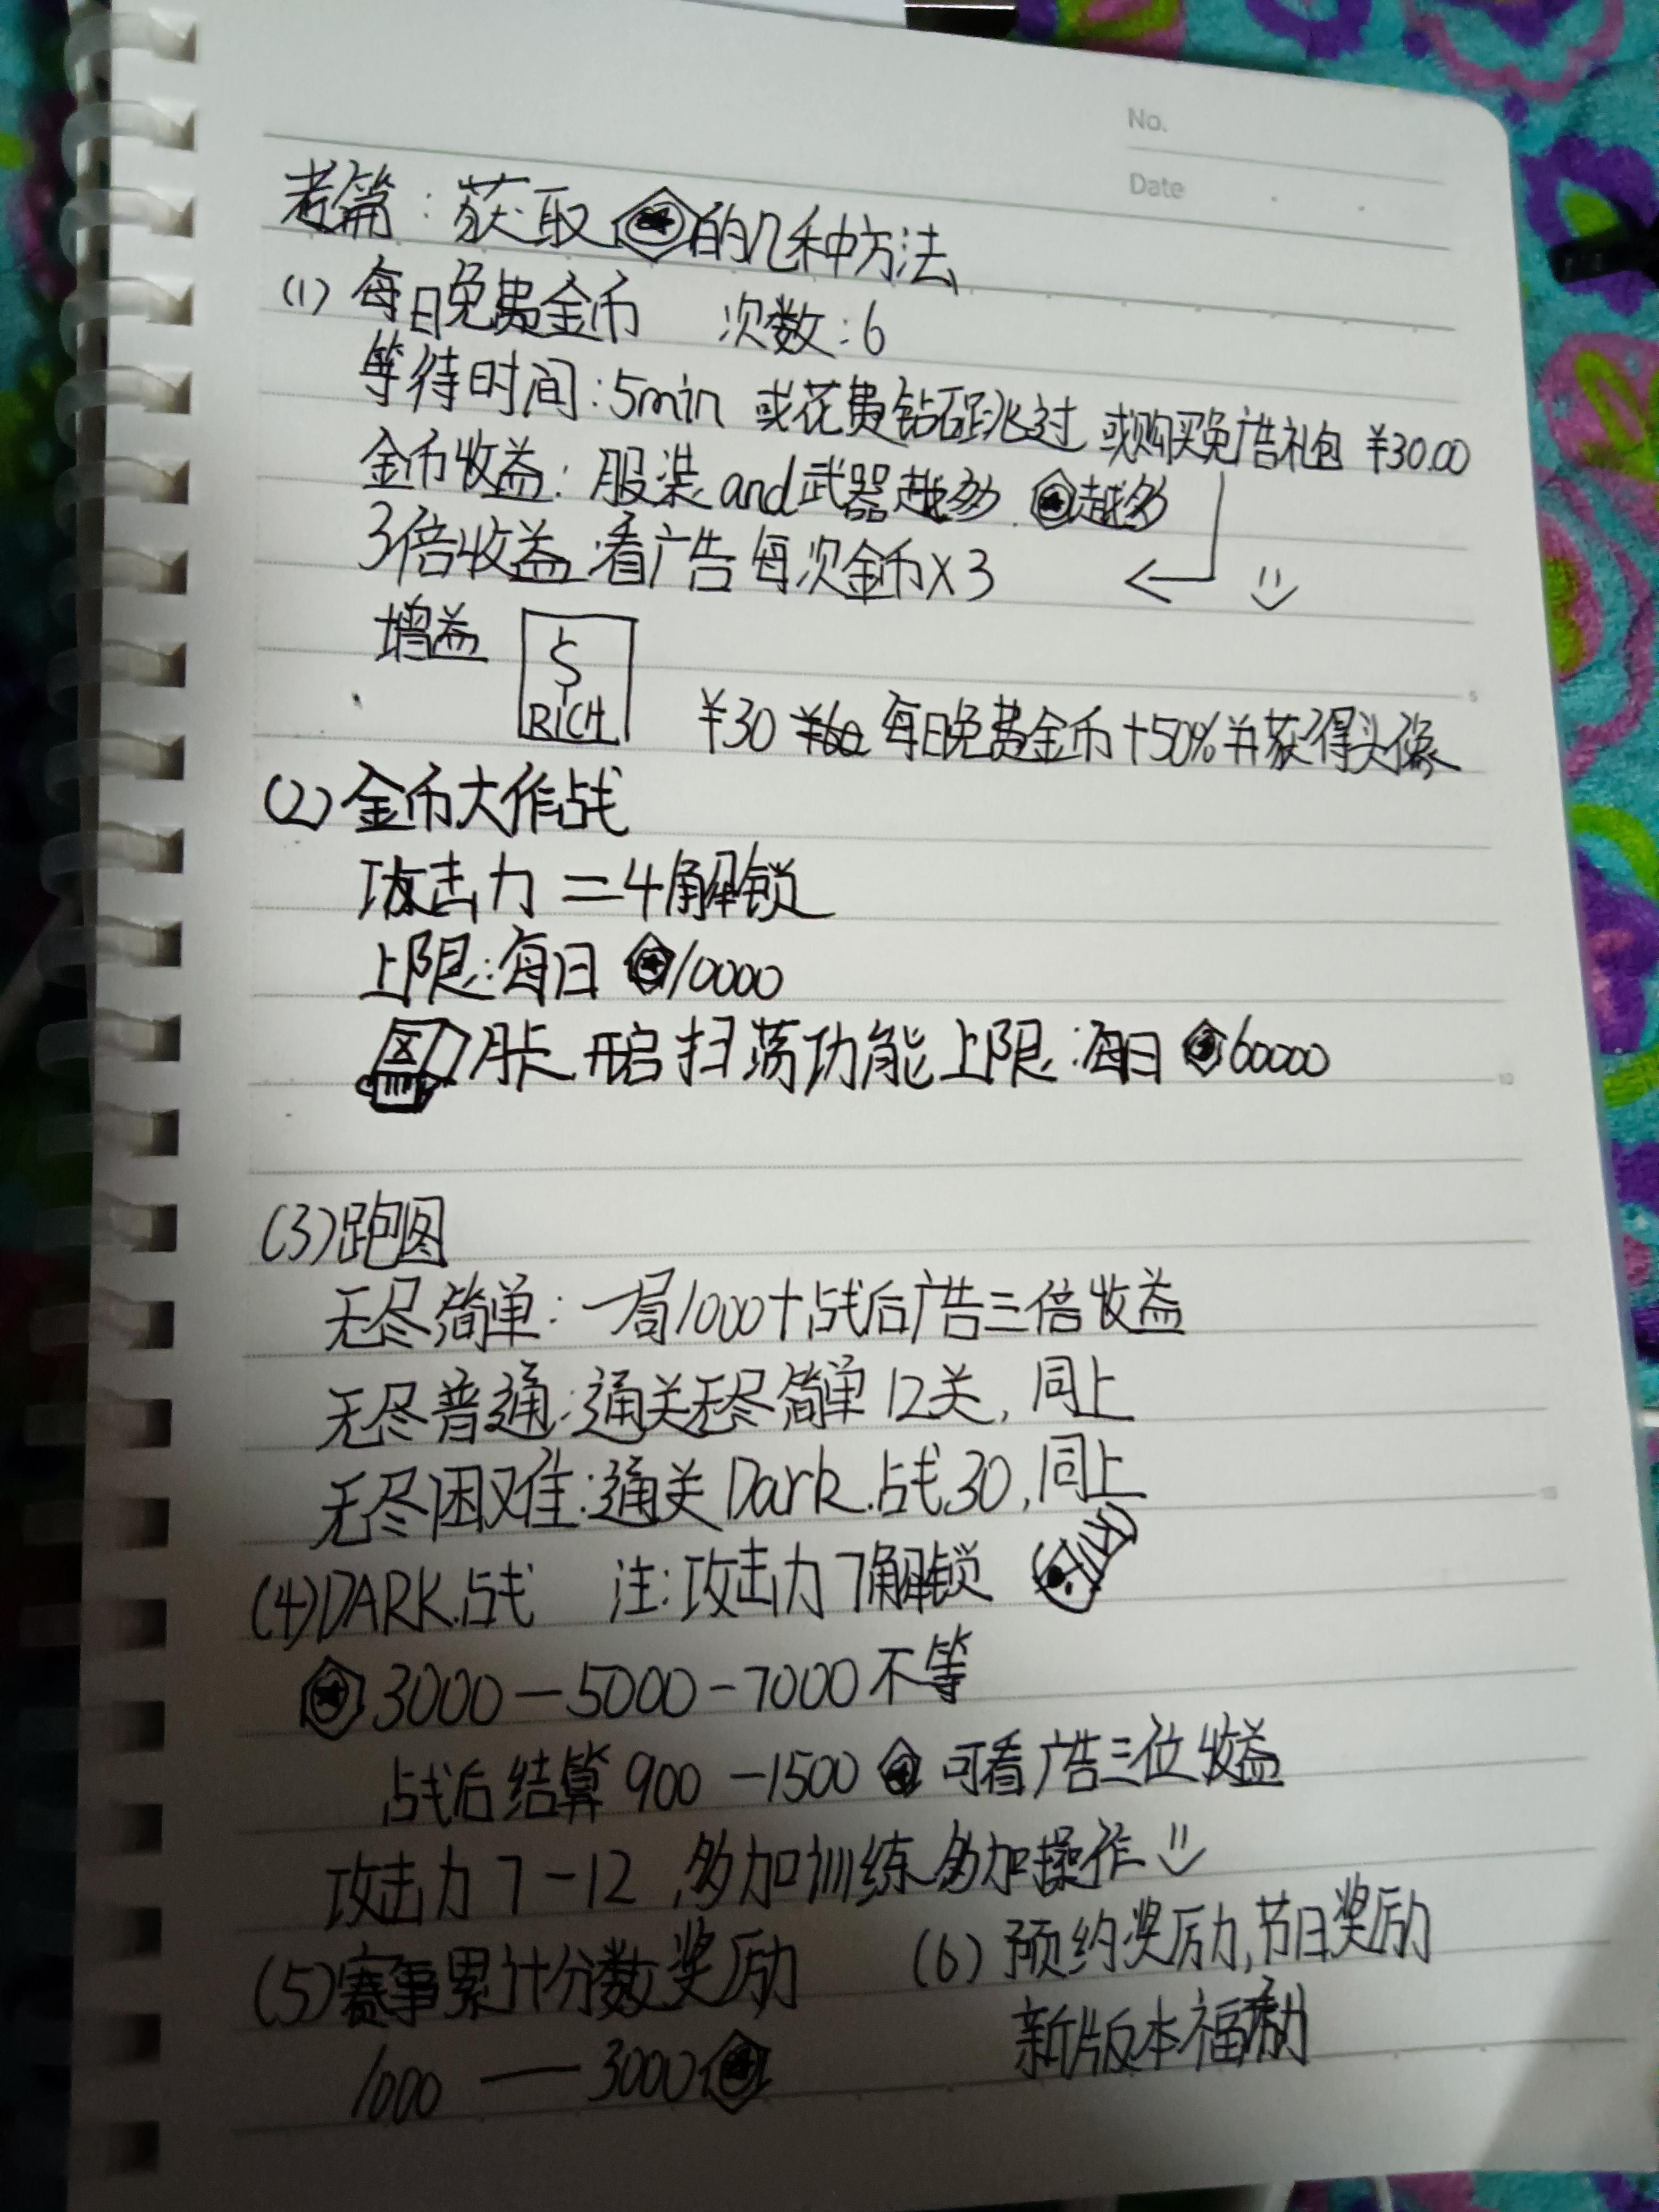 No.
Date
篇：获取的几种方法
(1) 每日免费金币 次数：6
等待时间：5min 或花费钻石跳过 或购买免广告礼包 ¥30.00
金币收益：服装and武器越多 越多
3倍收益：看广告每次金币×3
增益 $
RICH
¥30 ¥60 每日免费金币+50%并获得头像
(2) 金币大作战
攻击力=4解锁
上限：每日 10000
月卡 开启扫荡功能上限：每日 60000
(3)跑图
无尽简单：一局1000+战后广告三倍收益
无尽普通：通关无尽简单12关，同上
无尽困难：通关Dark.战30，同上
(4)DARK.战 注：攻击力7解锁
3000—5000-7000不等
战后结算900—1500 可看广告三位收益
攻击力7-12，多加训练多加操作
(5)赛事累计分数奖励
1000 — 3000
(6) 预约奖励，节日奖励
新版本福利